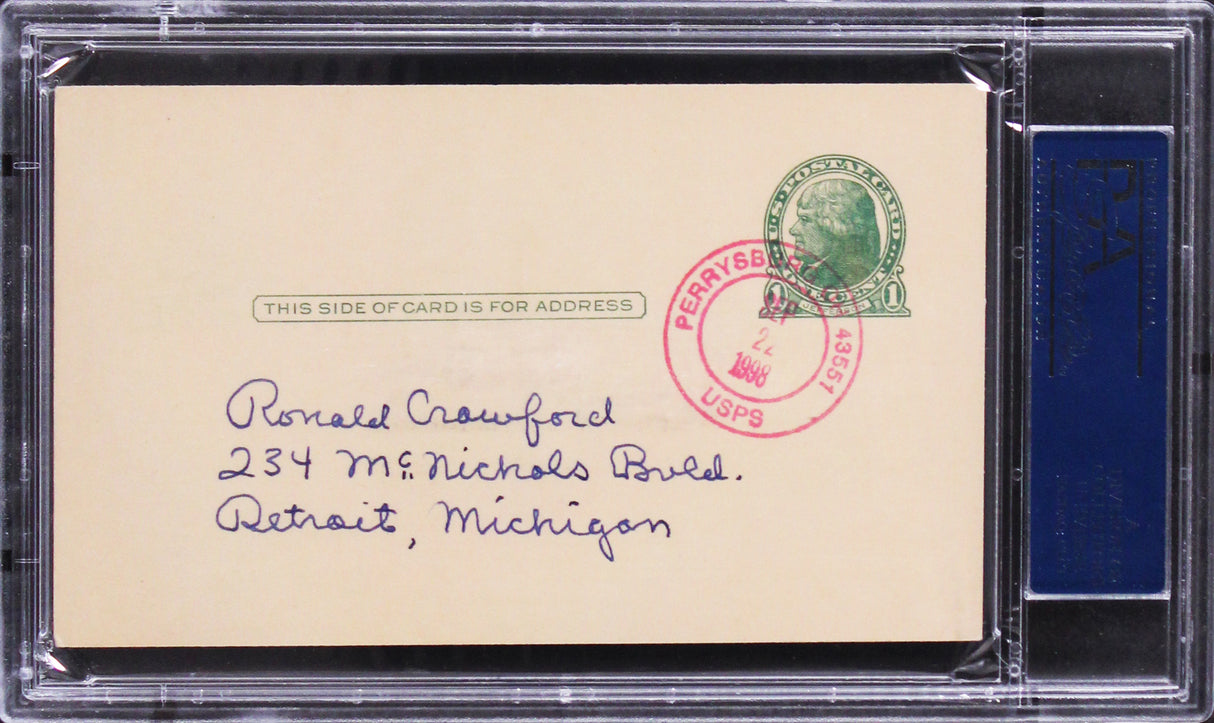 U.S. POSTAL CARD
ONE CENT
1 1
JEFFERSON
THIS SIDE OF CARD IS FOR ADDRESS
PERRYSBURG 43551
22
1998
USPS
Ronald Crawford
234 Mc Nichols Bvld.
Detroit, Michigan